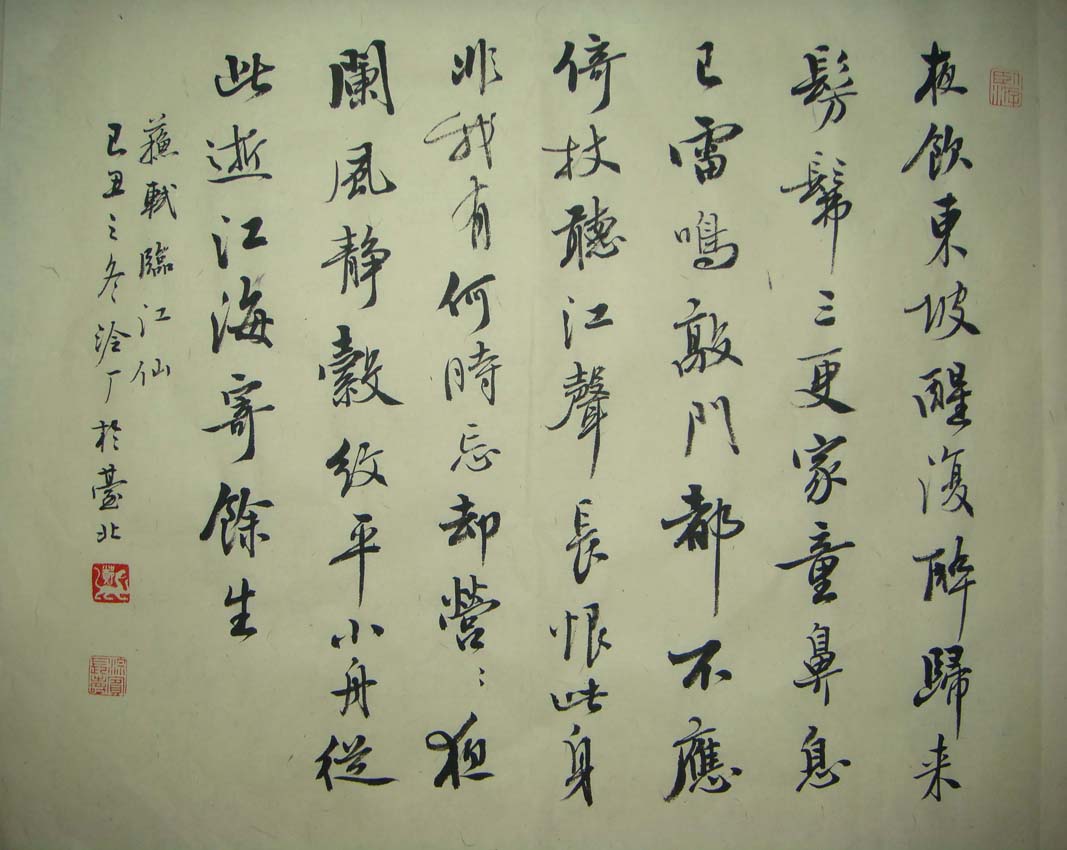 夜飲東坡醒復醉歸来
髣髴三更家童鼻息
已雷鳴敲門都不應
倚杖聽江聲長恨此身
非我有何時忘却營〻夜
闌風静縠紋平小舟從
此逝江海寄餘生
蘇軾臨江仙
己丑之冬於臺北